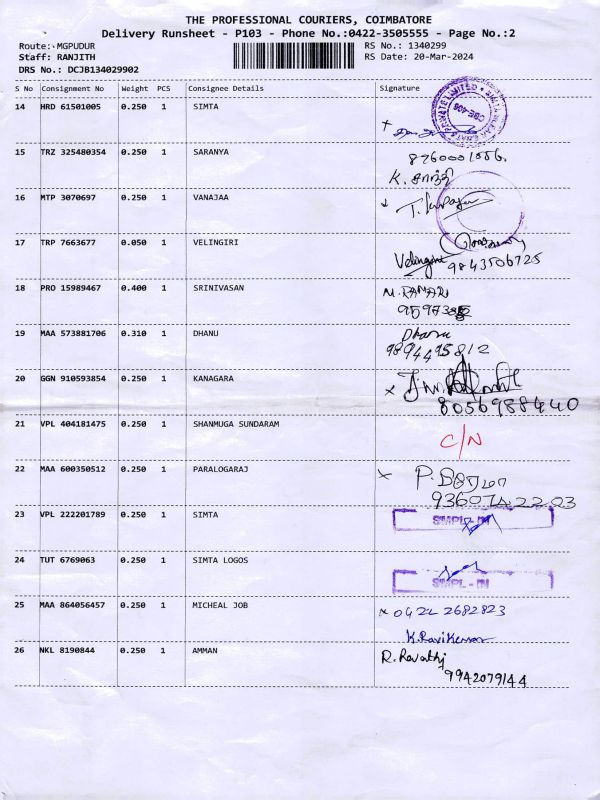 THE PROFESSIONAL COURIERS, COIMBATORE
Delivery Runsheet - P103 - Phone No.:0422-3505555 - Page No.:2
Route: MGPUDUR
RS No.: 1340299
Staff: RANJITH
RS Date: 20-Mar-2024
DRS No.: DCJB134029902
S No Consignment No Weight PCS Consignee Details Signature
14 HRD 61501005 0.250 1 SIMTA
PRIVATE LIMITED
15 TRZ 325480354 0.250 1 SARANYA
K. சாந்தி
16 MTP 3070697 0.250 1 VANAJAA
17 TRP 7663677 0.050 1 VELINGIRI
Velingiri 9843506725
18 PRO 15989467 0.400 1 SRINIVASAN
19 MAA 573881706 0.310 1 DHANU
Dhanu
9894495812
20 GGN 910593854 0.250 1 KANAGARA
8056988440
21 VPL 404181475 0.250 1 SHANMUGA SUNDARAM
C/N
22 MAA 600350512 0.250 1 PARALOGARAJ
23 VPL 222201789 0.250 1 SIMTA
SIMPL - MN
24 TUT 6769063 0.250 1 SIMTA LOGOS
SIMPL - MN
25 MAA 864056457 0.250 1 MICHEAL JOB
x 0422 2682823
K.Ravikumar
26 NKL 8190844 0.250 1 AMMAN
R. Revathj
9942079144